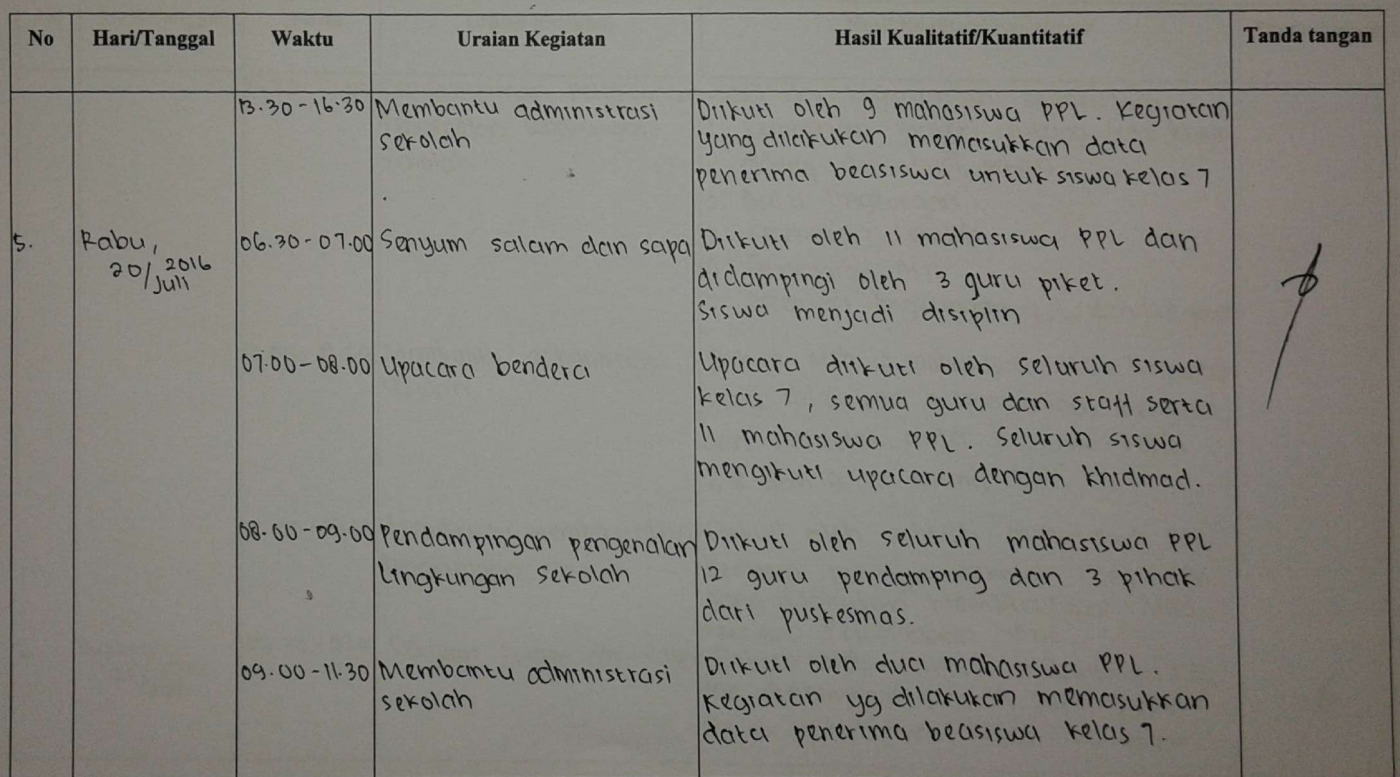 No Hari/Tanggal Waktu Uraian Kegiatan Hasil Kualitatif/Kuantitatif Tanda tangan
13.30-16.30 Membantu administrasi Diikuti oleh 9 mahasiswa PPL. Kegiatan
sekolah yang dilakukan memasukkan data
penerima beasiswa untuk siswa kelas 7
5. Rabu, 06.30-07.00 Senyum salam dan sapa Diikuti oleh 11 mahasiswa PPL dan
20/Juli 2016 didampingi oleh 3 guru piket.
Siswa menjadi disiplin
07.00-08.00 Upacara bendera Upacara diikuti oleh seluruh siswa
kelas 7, semua guru dan staff serta
11 mahasiswa PPL. Seluruh siswa
mengikuti upacara dengan khidmad.
08.00-09.00 Pendampingan pengenalan Diikuti oleh seluruh mahasiswa PPL
lingkungan sekolah 12 guru pendamping dan 3 pihak
dari puskesmas.
09.00-11.30 Membantu administrasi Diikuti oleh dua mahasiswa PPL.
sekolah Kegiatan yg dilakukan memasukkan
data penerima beasiswa kelas 7.